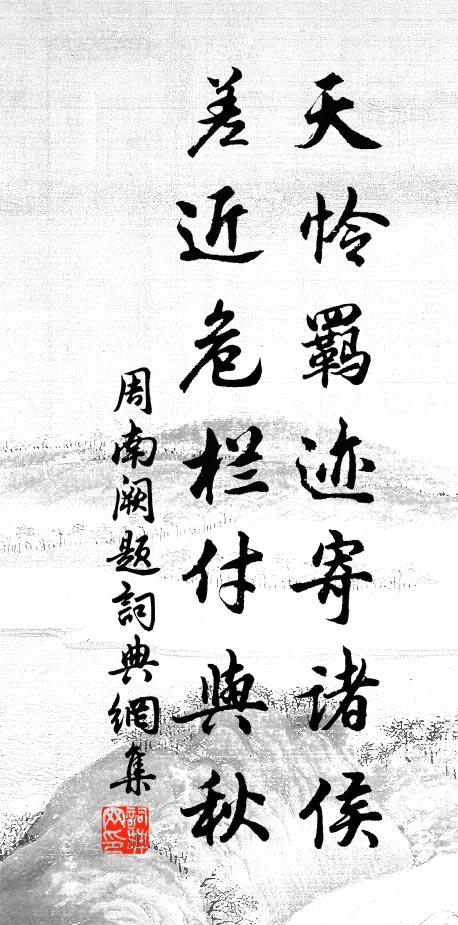 天怜羁迹寄诸侯
差近危栏付与秋
周南阙题詞典網集